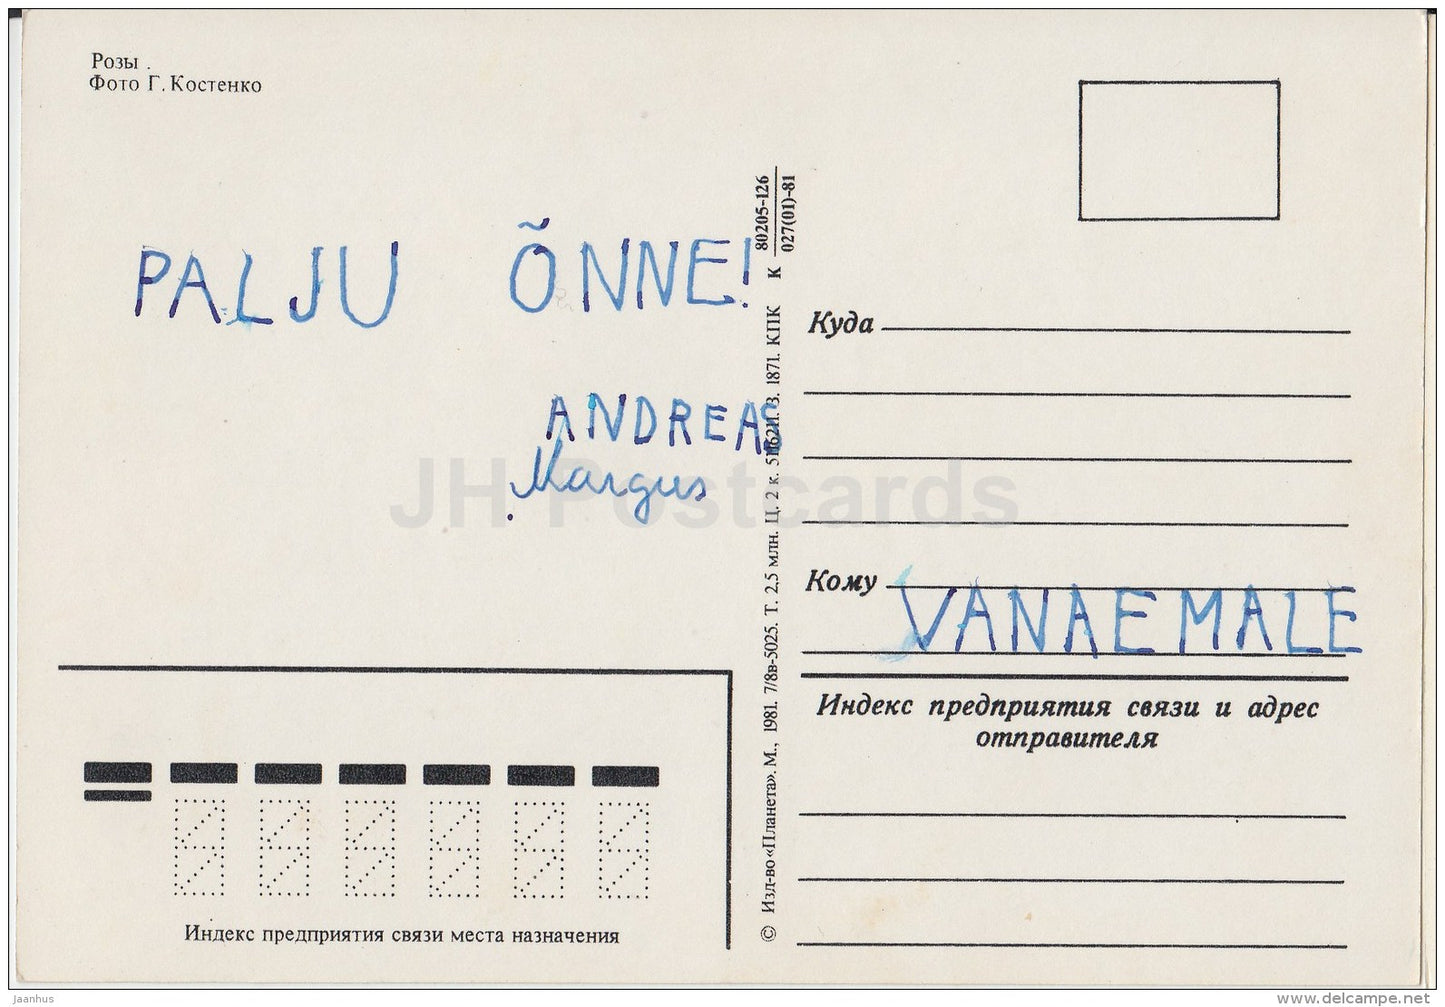 Розы
Фото Г. Костенко
PALJU ÕNNE!
ANDREAS
Margus
80205-126
К 027(01)-81
© Изд-во «Планета». М., 1981. 7/8в-5025. Т. 2,5 млн. Ц. 2 к. З. 1871. КПК
Куда
Кому VANAEMALE
Индекс предприятия связи и адрес
отправителя
Индекс предприятия связи места назначения
JH Postcards
jaanhus
delcampe.net